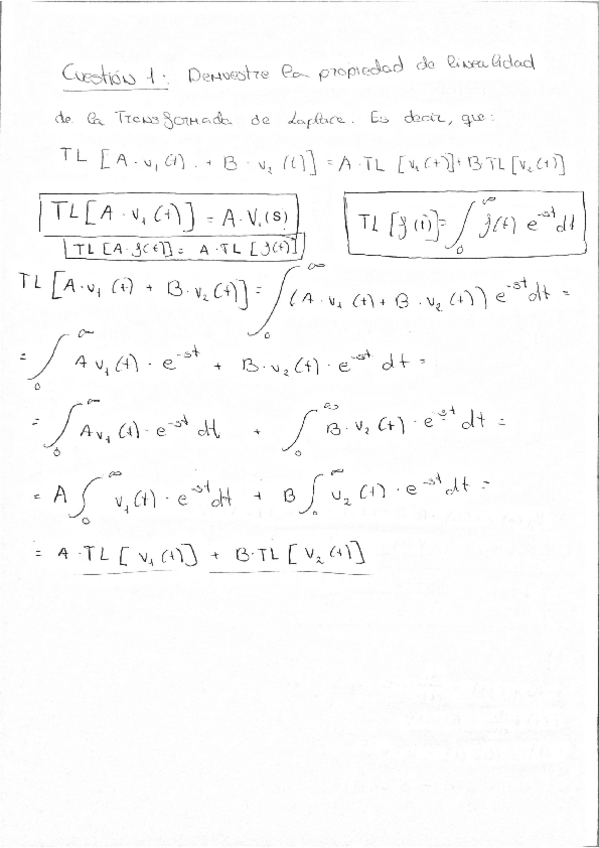 Cuestión 1: Demuestre la propiedad de linealidad
de la Transformada de Laplace. Es decir, que:
TL [A · v₁(t) + B · v₂(t)] = A · TL [v₁(t)] + B TL [v₂(t)]
TL [A · v₁(t)] = A · V₁(s)
TL [A · f(t)] = A · TL [f(t)]
TL [f(t)] = ∫₀^∞ f(t) e^-st dt
TL [A · v₁(t) + B · v₂(t)] = ∫₀^∞ (A · v₁(t) + B · v₂(t)) e^-st dt =
= ∫₀^∞ A v₁(t) · e^-st + B · v₂(t) · e^-st dt =
= ∫₀^∞ A v₁(t) · e^-st dt + ∫₀^∞ B · v₂(t) · e^-st dt =
= A ∫₀^∞ v₁(t) · e^-st dt + B ∫₀^∞ v₂(t) · e^-st dt =
= A · TL [v₁(t)] + B · TL [v₂(t)]